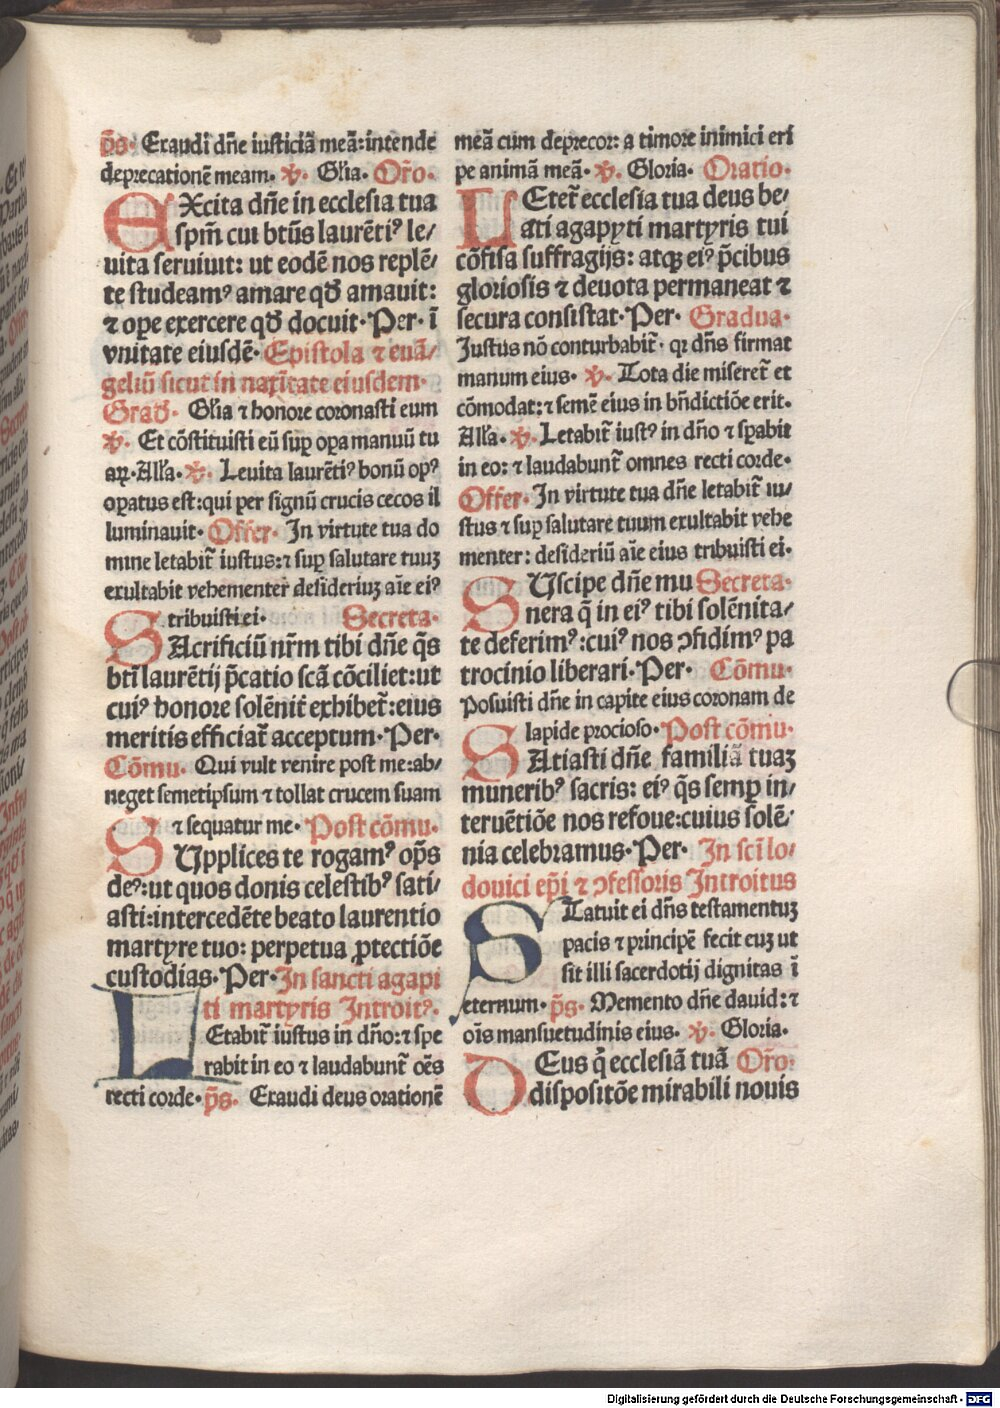 p̄s· Exaudi dn̄e iusticiā meā:intende
deprecationē meam· ℣· Gl̄ia· Or̄o·
EXcita dn̄e in ecclesia tua
spm̄ cui bt̄us laurēti⁹ le/
uita seruiuit: ut eodē nos replē/
te studeam⁹ amare qđ amauit:
⁊ oꝑe exercere qđ docuit·Per· ī
vnitate eiusdē· Epistola ⁊ euā/
geliū sicut in natitate eiusdem·
Građ· Gl̄ia ⁊ honore coronasti eum
℣· Et cōstituisti eū suꝑ oꝑa manuū tu
aꝝ·All̄a·℣· Leuita laurēti⁹ bonū op⁹
oꝑatus est:qui per signū crucis cecos il
luminauit· Offer· In virtute tua do
mine letabit̄ iustus:⁊ suꝑ salutare tuuꝫ
exultabit vehementer desideriuꝫ aīe ei⁹
tribuisti ei· Secreta·
SAcrificiū nr̄m tibi dn̄e q̄s
bt̄i laurētij p̄catio scā cōciliet:ut
cui⁹ honore solēnit̄ exhibet̄:eius
meritis efficiat̄ acceptum·Per·
Cōmu· Qui vult venire post me:ab/
neget semetipsum ⁊ tollat crucem suam
⁊ sequatur me· Post cōmu·
SUpplices te rogam⁹ op̄s
de⁹:ut quos donis celestib⁹ sati/
asti:intercedēte beato laurentio
martyre tuo: perpetua ꝓtectiōe
custodias·Per·In sancti agapi
ti martyris Introit⁹·
LEtabit̄ iustus in dn̄o:⁊ spe
rabit in eo ⁊ laudabunt̄ oēs
recti corde·p̄s· Exaudi deus orationē
meā cum deprecor: a timore inimici eri
pe animā meā· ℣· Gloria· Oratio·
LEtet̄ ecclesia tua deus be/
ati agapyti martyris tui
cōfisa suffragijs: atqꝫ ei⁹ p̄cibus
gloriosis ⁊ deuota permaneat ⁊
secura consistat·Per· Gradua·
Justus nō conturbabit̄· qꝛ dn̄s firmat
manum eius· ℣· Tota die miseret̄ et
cōmodat:⁊ semē eius in bn̄dictiōe erit·
All̄a· ℣· Letabit̄ iust⁹ in dn̄o ⁊ sꝑabit
in eo: ⁊ laudabunt̄ omnes recti corde·
Offer· In virtute tua dn̄e letabit̄ iu/
stus ⁊ suꝑ salutare tuum exultabit vehe
menter: desideriū aīe eius tribuisti ei·
SUscipe dn̄e mu Secreta·
nera q̄ in ei⁹ tibi solēnita/
te deferim⁹:cui⁹ nos ꝯfidim⁹ pa
trocinio liberari·Per· Cōmu·
Posuisti dn̄e in capite eius coronam de
lapide precioso·Post cōmu·
SAtiasti dn̄e familiā tuaꝫ
munerib⁹ sacris: ei⁹ q̄s semꝑ in/
teruētiōe nos refoue:cuius solē/
nia celebramus·Per· In sc̄i lo/
douici ep̄i ⁊ ꝯfessoris Introitus
STatuit ei dn̄s testamentuꝫ
pacis ⁊ principē fecit euꝫ ut
sit illi sacerdotij dignitas ī
eternum· p̄s· Memento dn̄e dauid:⁊
oīs mansuetudinis eius· ℣· Gloria·
DEus q̄ ecclesiā tuā Or̄o·
dispositōe mirabili nouis
Digitalisierung gefördert durch die Deutsche Forschungsgemeinschaft - DFG